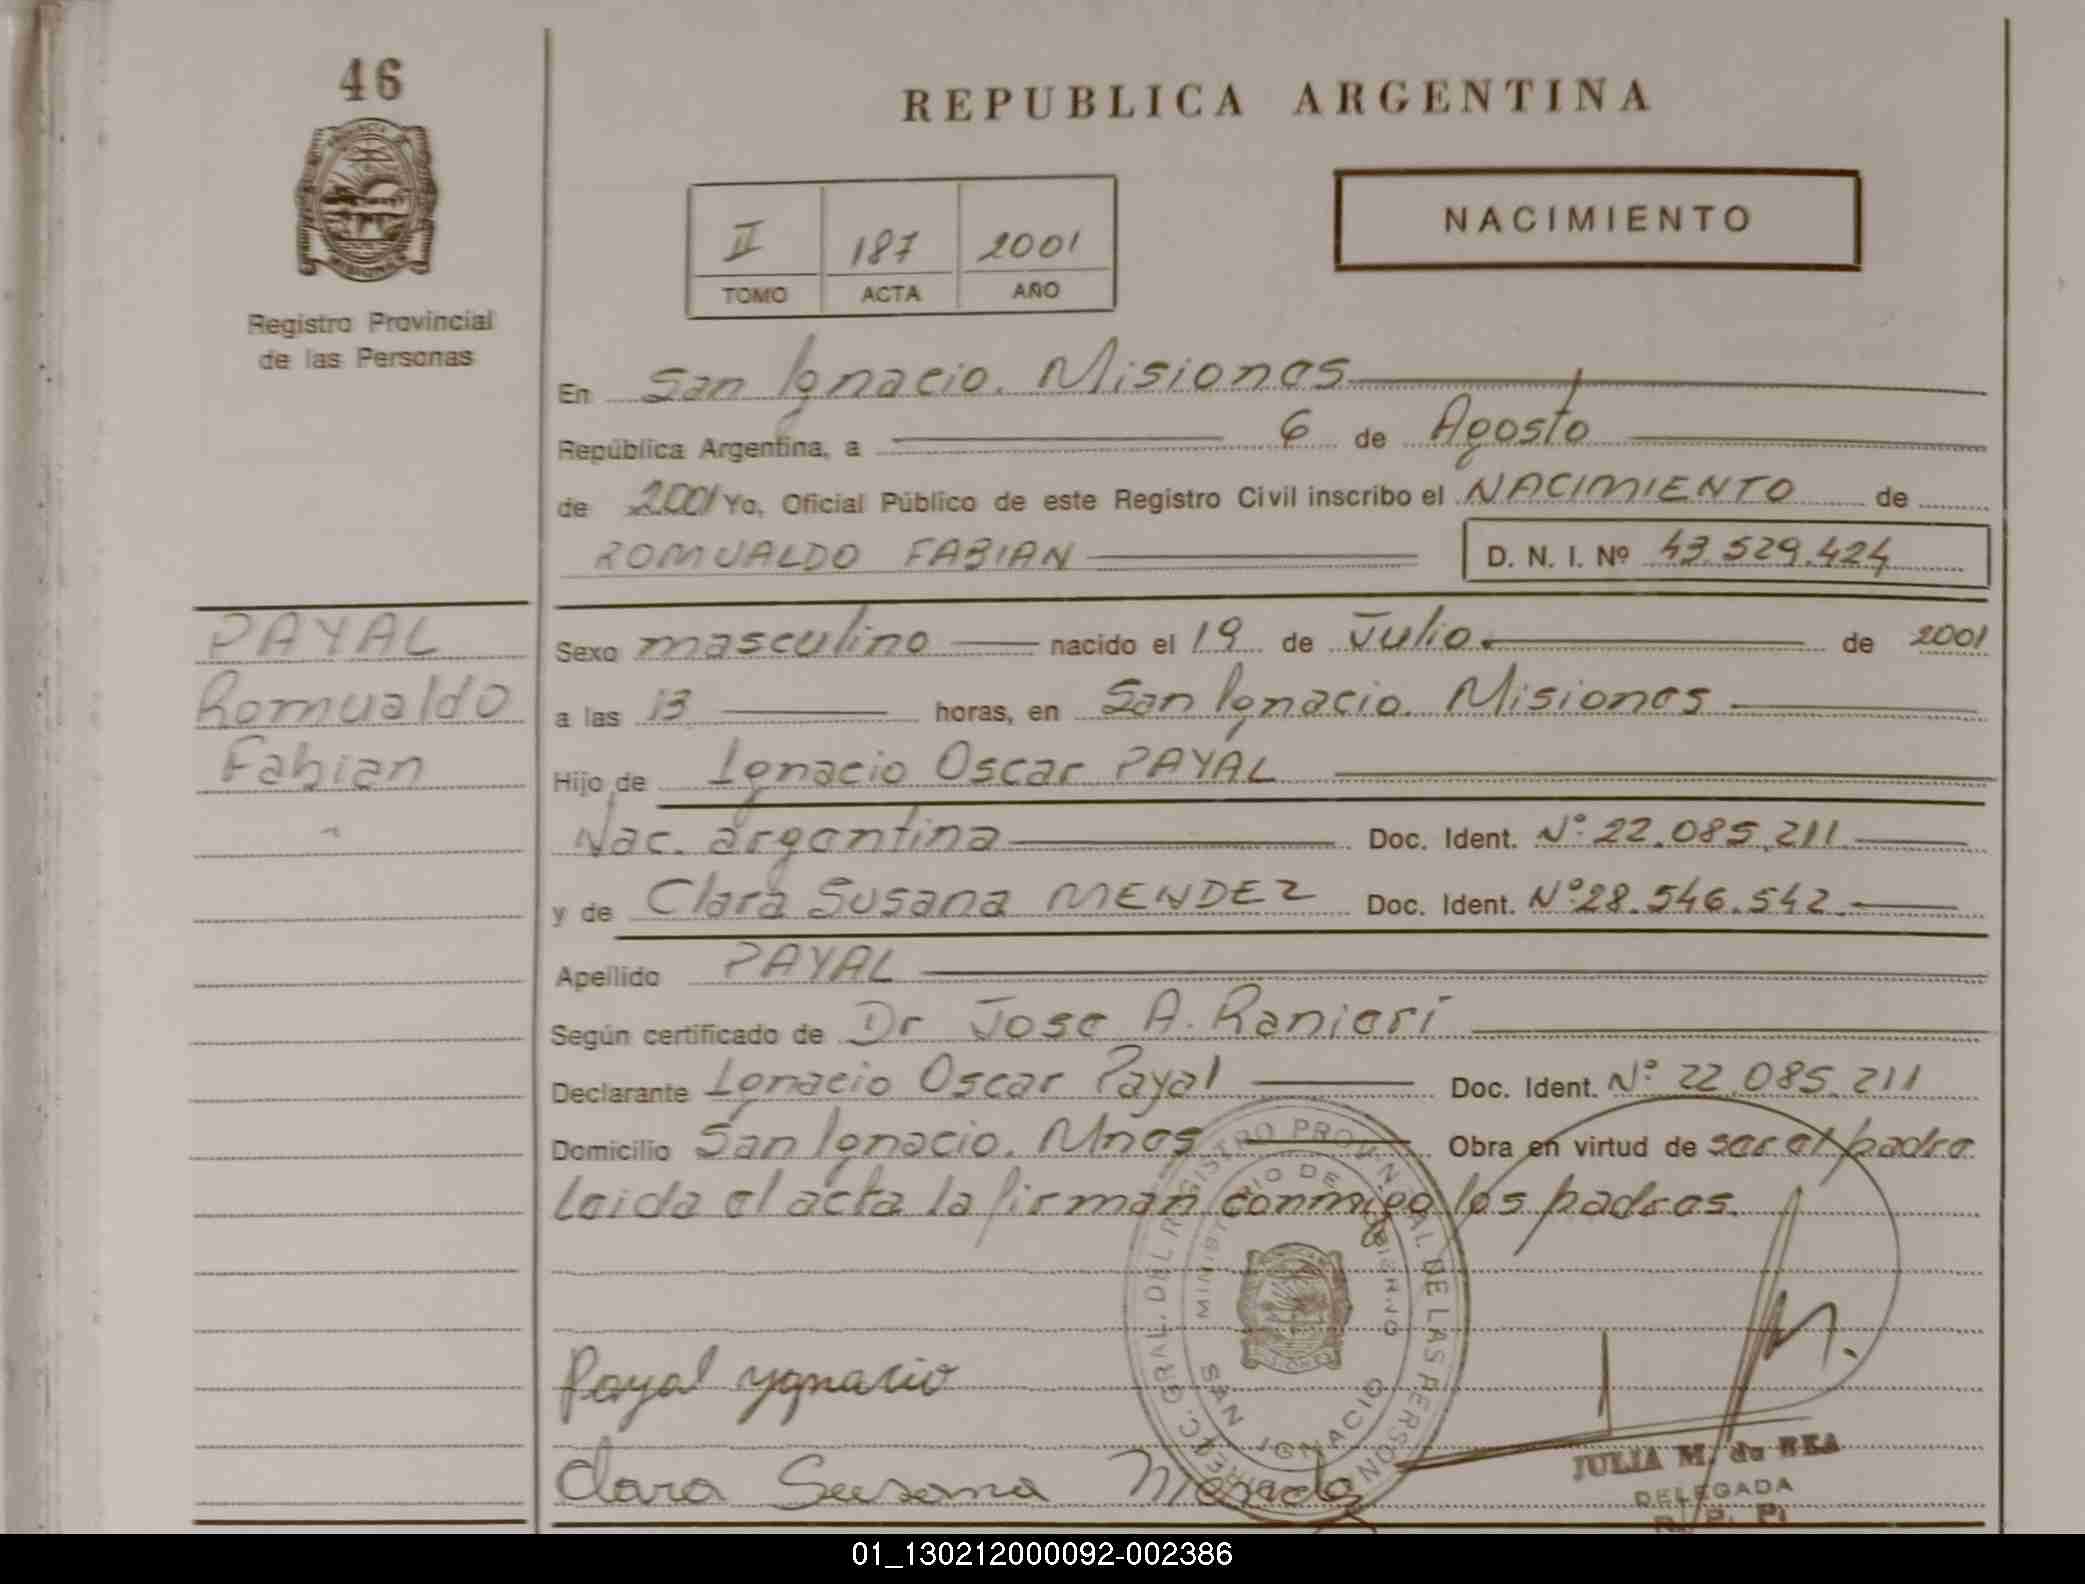 46
REPUBLICA ARGENTINA
NACIMIENTO
II 187 2001
TOMO ACTA AÑO
Registro Provincial
de las Personas
En San Ignacio. Misiones
República Argentina, a 6 de Agosto
de 2001 Yo, Oficial Público de este Registro Civil inscribo el NACIMIENTO de
ROMUALDO FABIAN D. N. I. Nº 43.529.424
PAYAL
Romualdo
Fabian
Sexo masculino nacido el 19 de Julio de 2001
a las 13 horas, en San Ignacio. Misiones
Hijo de Ignacio Oscar PAYAL
Nac. argentina Doc. Ident. Nº 22.085.211
y de Clara Susana MENDEZ Doc. Ident. Nº 28.546.542
Apellido PAYAL
Según certificado de Dr Jose A. Ranieri
Declarante Ignacio Oscar Payal Doc. Ident. Nº 22.085.211
Domicilio San Ignacio. Mnes Obra en virtud de ser el padre
Leida el acta la firman conmigo los padres.
Payal Ygnacio
Clara Susana
DIREC. GRAL. DEL REGISTRO PROVINCIAL DE LAS PERSONAS
MINISTERIO DE GOBIERNO
SAN IGNACIO
JULIA M. de REA
DELEGADA
R. P. P.
01_130212000092-002386